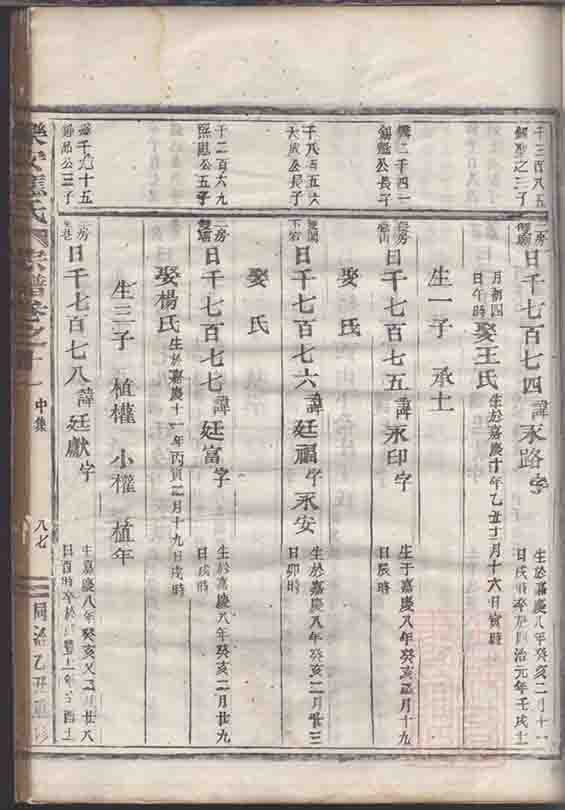 千三百八五
錫聖之三子
二房
日千七百七四諱永路字
生於嘉慶八年癸亥二月十一
日戌時卒於同治元年壬戌十
月初四
日午時
娶王氏
生於嘉慶十年乙丑十二月十六日寅時
生一子 承土
千四一
錫鑑公長子
日千七百七五諱永印字
生于嘉慶八年癸亥正月十九
日辰時
娶 氏
千八百五六
大成公長子
日千七百七六諱廷福字永安
生於嘉慶八年癸亥二月廿三
日卯時
娶 氏
千二百六九
熙恩公五子
二房
日千七百七七諱廷富字
生於嘉慶八年癸亥二月廿九
日戌時
娶楊氏
生於嘉慶十一年丙寅二月十九日戌時
生三子 植權 小權 植年
千九十五
公三子
二房
日千七百七八諱廷獻字
生嘉慶八年癸亥又二月廿八
日酉時卒於
氏宗譜卷之十
中集
八七
同治乙丑重修